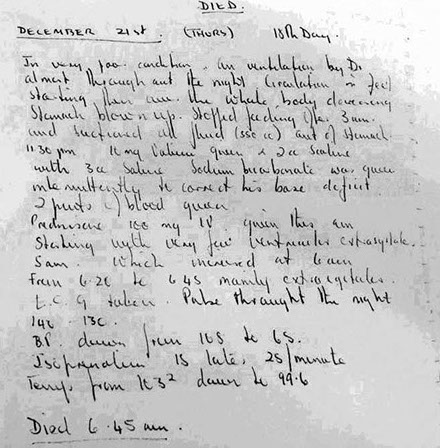 DIED.
DECEMBER 21st. (THURS) 18th Day.
In very poor condition. on ventilation by Dr
almost throughout the night Circulation
starting then the whole body
Stomach blown up. Stopped feeding 3 am.
and suctioned all fluid out of stomach
11.30 pm 10 mg Valium given 2 cc Saline
with 3 cc Saline Sodium bicarbonate was given
intermittently to correct his base deficit
2 pints of blood given
100 mg IV given this am
Starting with very few Ventricular extrasystole.
5 am. Which increased at 6 am
from 6.20 to 6.45 mainly extrasystoles.
E.C.G taken. Pulse throughout the night
140 - 130.
B.P. down from 105 to 65.
Isoprenaline 15 later 25/minute
Temp from 103² down to 99.6
Died 6.45 am.